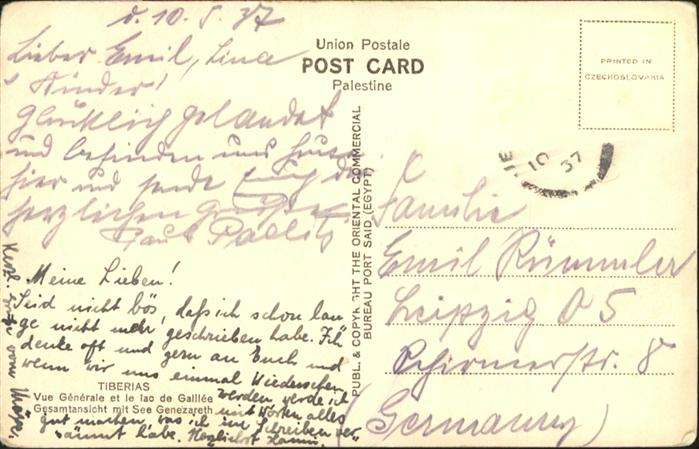 d. 10. 5. 37
Lieber Emil, Lina
u. Kinder!
Glücklich gelandet
und befinden uns
hier und sende Euch die
herzlichen Grüße
Paul
Meine Lieben!
Seid nicht bös, daß ich schon lan
ge nicht mehr geschrieben habe. Ich
denke oft und gern an Euch und
wenn wir uns einmal Wiedersehen
werden, werde ich
mit Worten alles
gut machen, was ich im Schreiben ver
säumt habe. Herzlichst
Herzl.
TIBERIAS
Vue Générale et le lac de Galilée
Gesamtansicht mit See Genezareth
Union Postale
POST CARD
Palestine
PUBL. & COPYRIGHT THE ORIENTAL COMMERCIAL
BUREAU PORT SAID (EGYPT)
PRINTED IN
CZECHOSLOVAKIA
10 37
Familie
Emil Rümmler
Leipzig O 5
Schirmerstr. 8
(Germany)